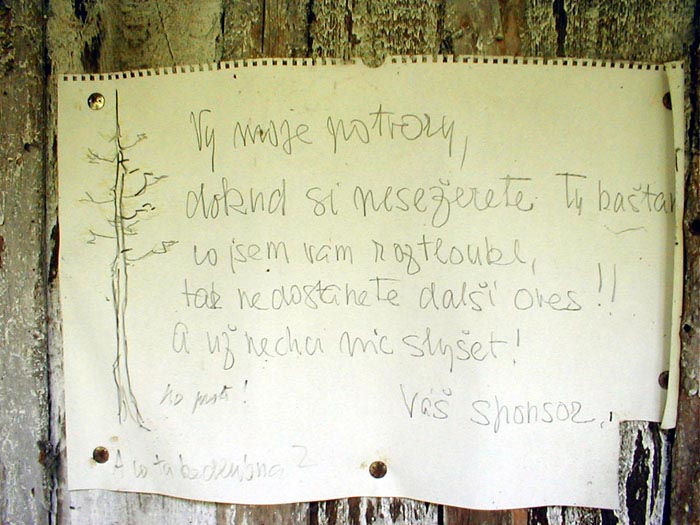 Vy moje potvory,
dokud si nesežerete ty baštan
co jsem vám roztloukl,
tak nedostanete další oves!!
A už nechci nic slyšet!
Váš sponsor.
no prosti!
A co ta